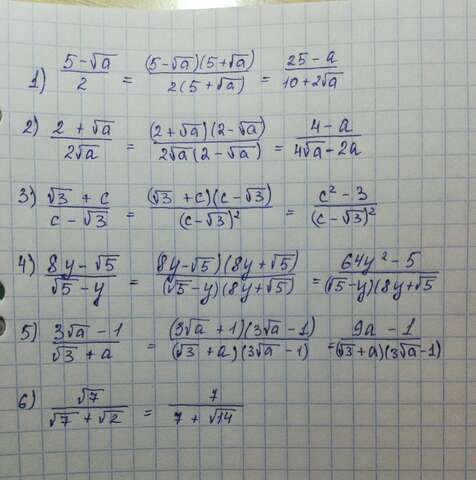 1) (5-√a)/2 = ((5-√a)(5+√a))/(2(5+√a)) = (25-a)/(10+2√a)
2) (2+√a)/(2√a) = ((2+√a)(2-√a))/(2√a(2-√a)) = (4-a)/(4√a-2a)
3) (√3+c)/(c-√3) = ((√3+c)(c-√3))/((c-√3)²) = (c²-3)/((c-√3)²)
4) (8y-√5)/(√5-y) = ((8y-√5)(8y+√5))/((√5-y)(8y+√5)) = (64y²-5)/((√5-y)(8y+√5
5) (3√a-1)/(√3+a) = ((3√a+1)(3√a-1))/((√3+a)(3√a-1)) = (9a-1)/((√3+a)(3√a-1))
6) √7/(√7+√2) = 7/(7+√14)